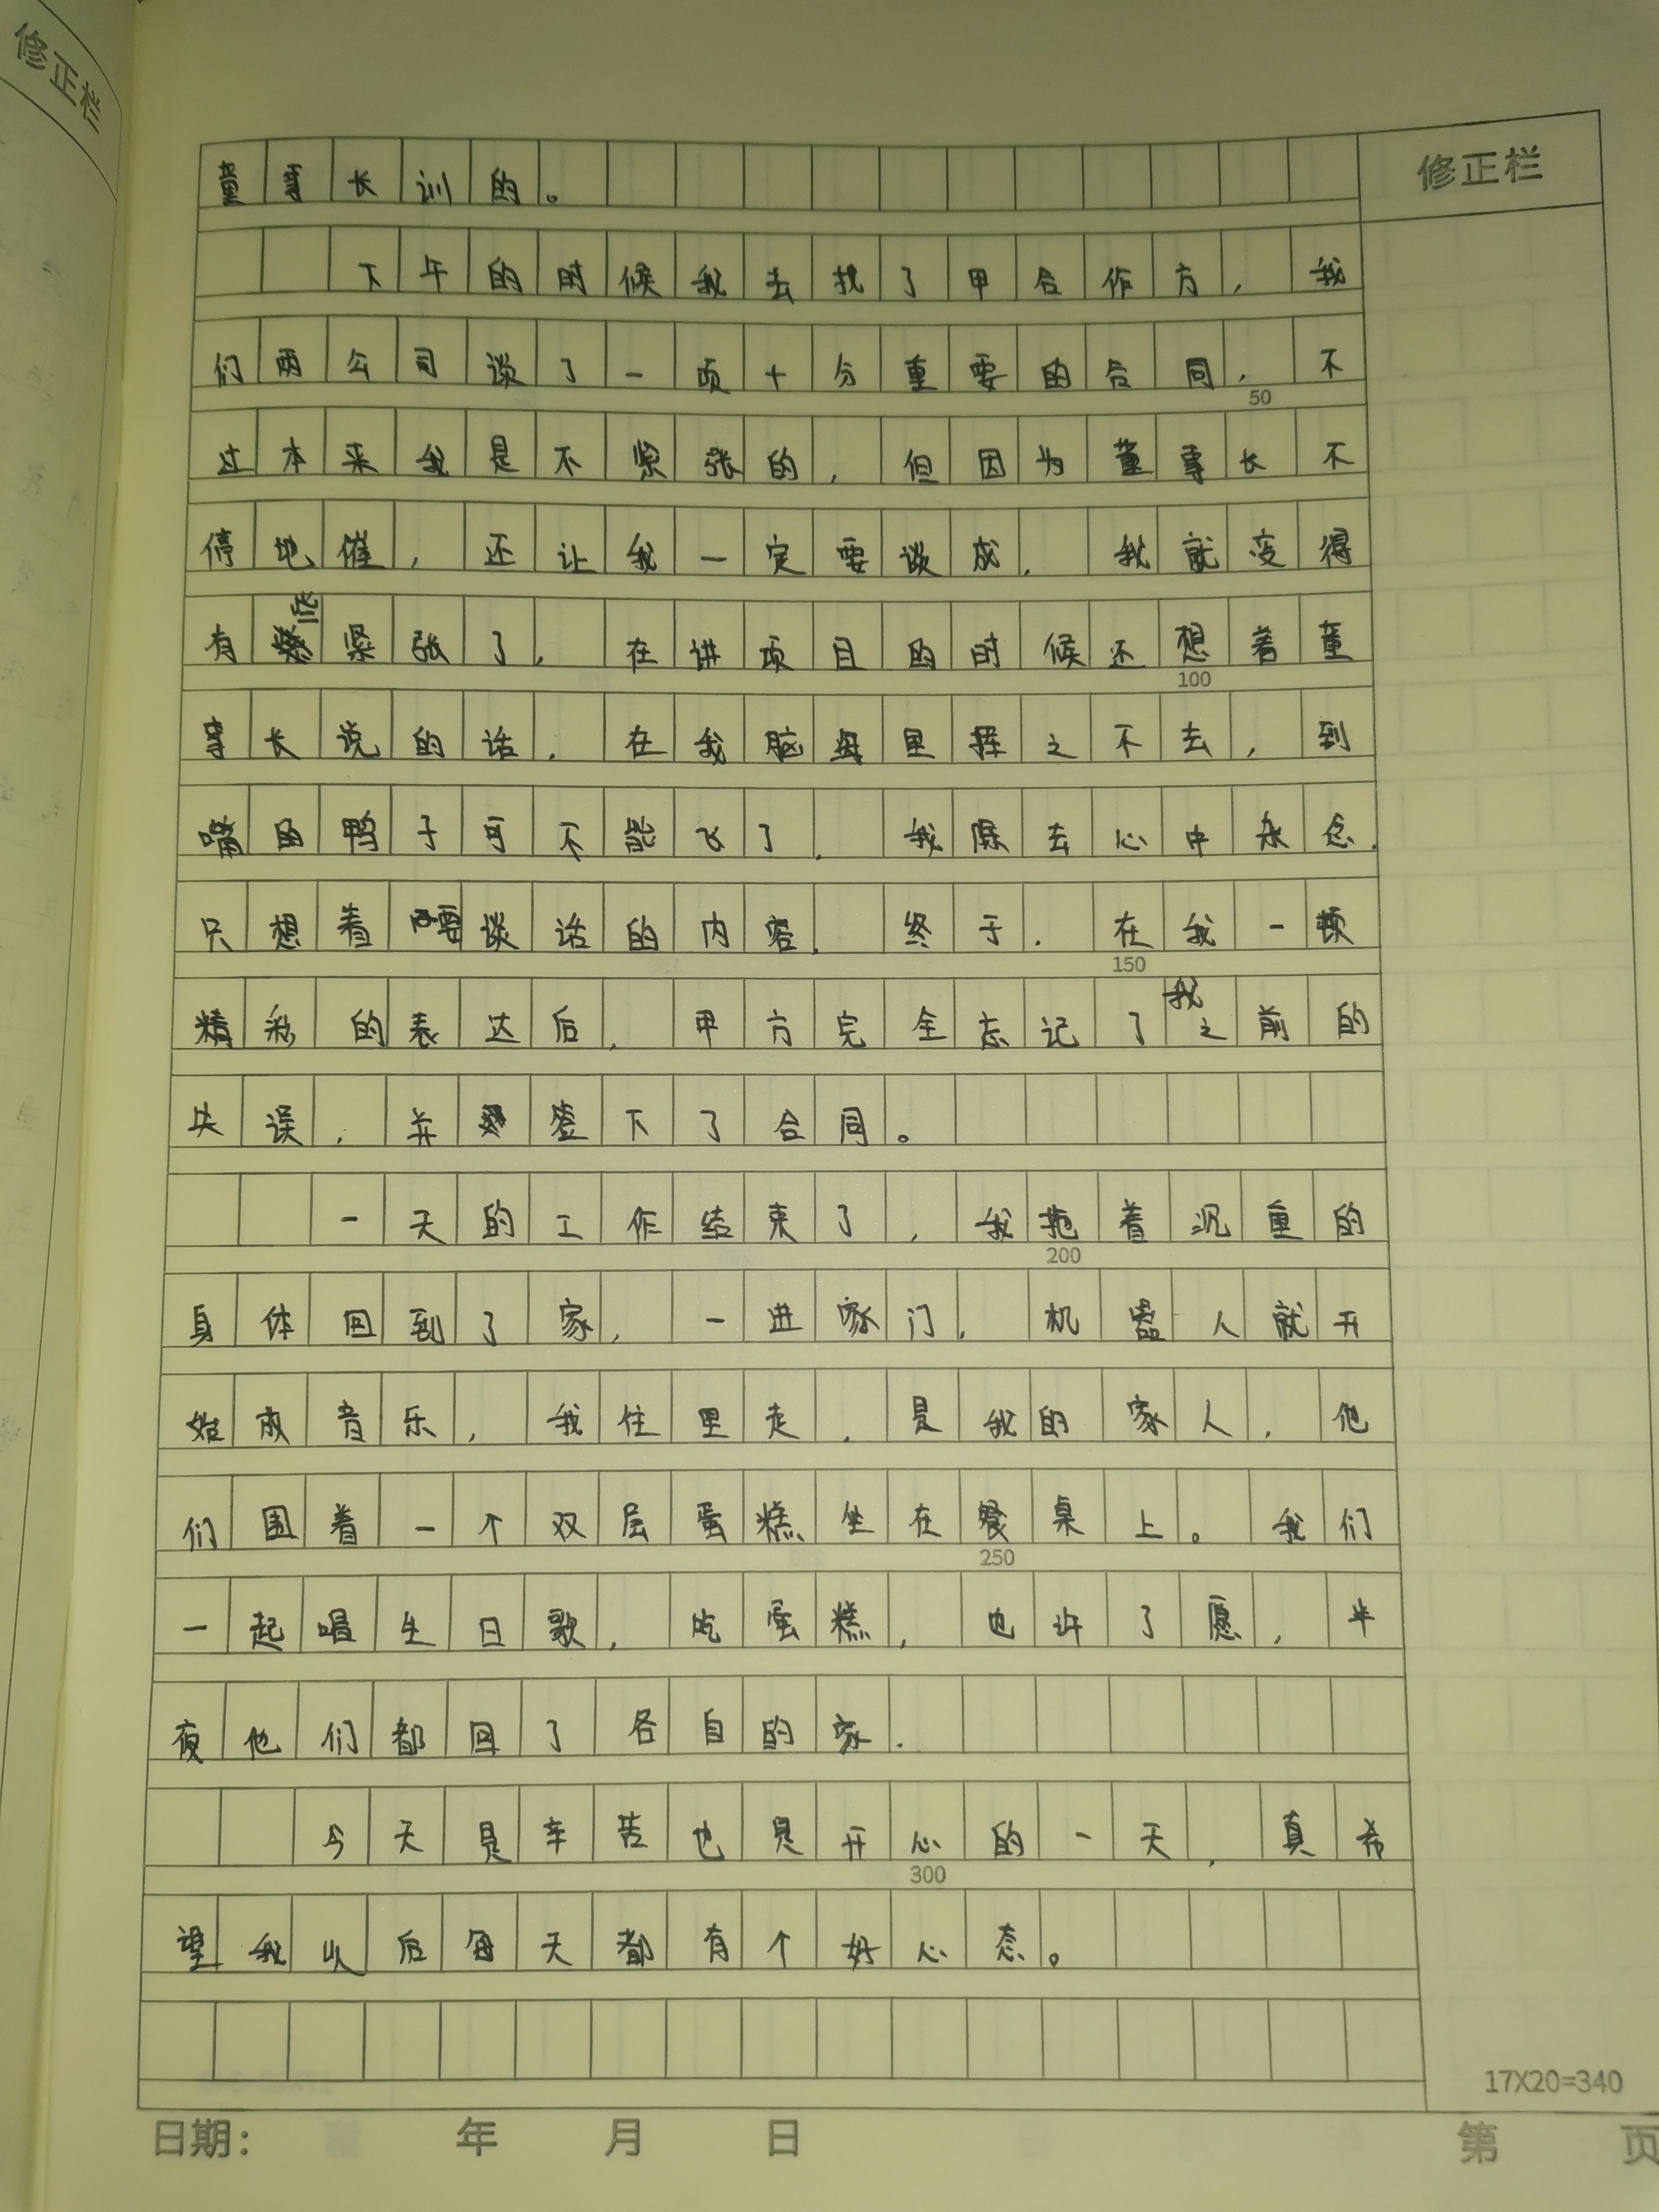 修正栏
修正栏
董事长训的。
下午的时候我去找了甲合作方，我
们两公司谈了一项十分重要的合同，不
过本来我是不紧张的，但因为董事长不
停地催，还让我一定要谈成，我就变得
有些紧张了，在讲项目的时候还想着董
事长说的话，在我脑海里挥之不去，到
嘴的鸭子可不能飞了，我除去心中杂念，
只想着要谈话的内容，终于，在我一顿
精彩的表达后，甲方完全忘记了我之前的
失误，并签下了合同。
一天的工作结束了，我拖着沉重的
身体回到了家，一进家门，机器人就开
始放音乐，我住里走，是我的家人，他
们围着一个双层蛋糕坐在餐桌上。我们
一起唱生日歌，吃蛋糕，也许了愿，半
夜他们都回了各自的家．
今天是辛苦也是开心的一天，真希
望我以后每天都有个好心态。
50
100
150
200
250
300
17X20=340
日期： 年 月 日 第 页